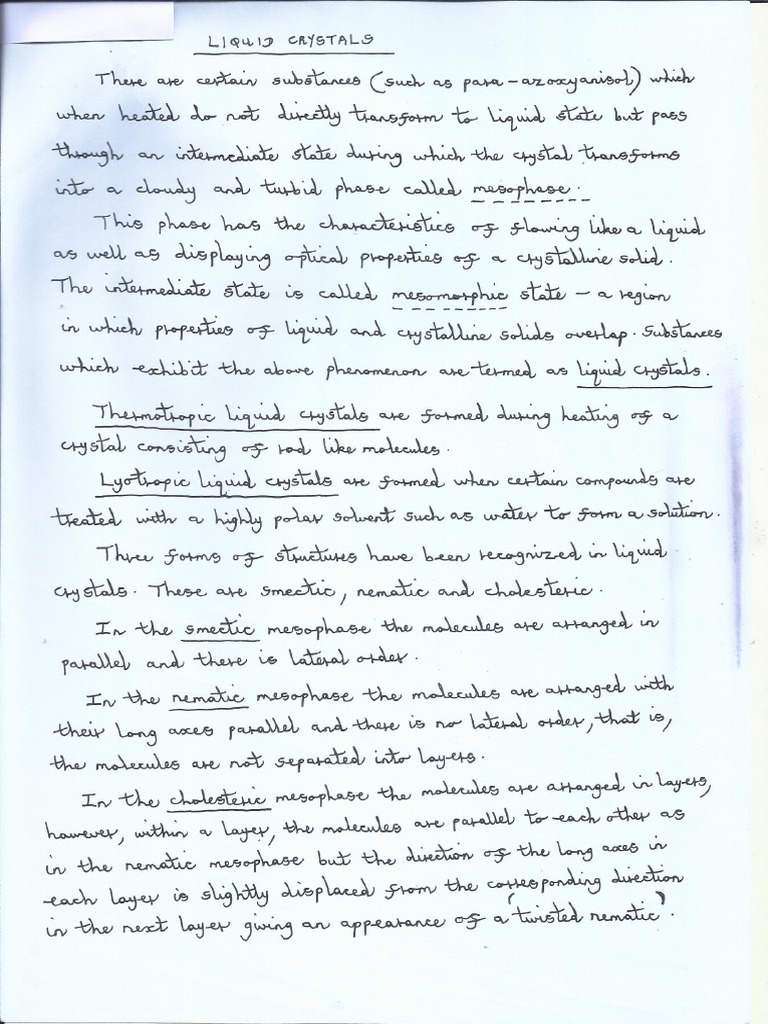 LIQUID CRYSTALS
There are certain substances (such as para-azoxyanisol) which
when heated do not directly transform to liquid state but pass
through an intermediate state during which the crystal transforms
into a cloudy and turbid phase called mesophase.
This phase has the characteristics of flowing like a liquid
as well as displaying optical properties of a crystalline solid.
The intermediate state is called mesomorphic state - a region
in which properties of liquid and crystalline solids overlap. Substances
which exhibit the above phenomenon are termed as liquid crystals.
Thermotropic liquid crystals are formed during heating of a
crystal consisting of rod like molecules.
Lyotropic liquid crystals are formed when certain compounds are
treated with a highly polar solvent such as water to form a solution.
Three forms of structures have been recognized in liquid
crystals. These are smectic, nematic and cholesteric.
In the smectic mesophase the molecules are arranged in
parallel and there is lateral order.
In the nematic mesophase the molecules are arranged with
their long axes parallel and there is no lateral order, that is,
the molecules are not separated into layers.
In the cholesteric mesophase the molecules are arranged in layers,
however, within a layer, the molecules are parallel to each other as
in the nematic mesophase but the direction of the long axes in
each layer is slightly displaced from the corresponding direction
in the next layer giving an appearance of a 'twisted nematic'.